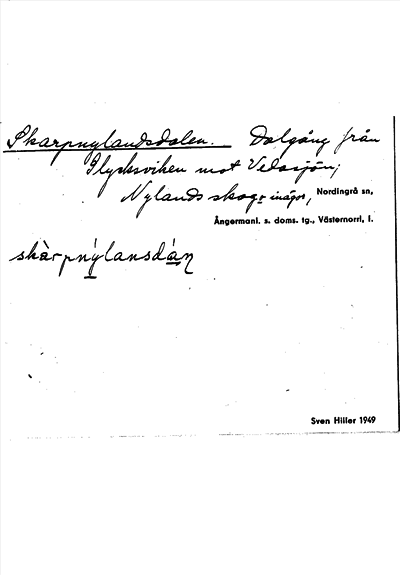 Skarpnylandsdalen. Dalgång från
Ilycksviken mot Vedasjön;
Nylands skog- inägor, Nordingrå sn,
Ångermanl. s. doms. tg., Västernorrl. l.
skàrpnýlansdáṇ
Sven Hiller 1949